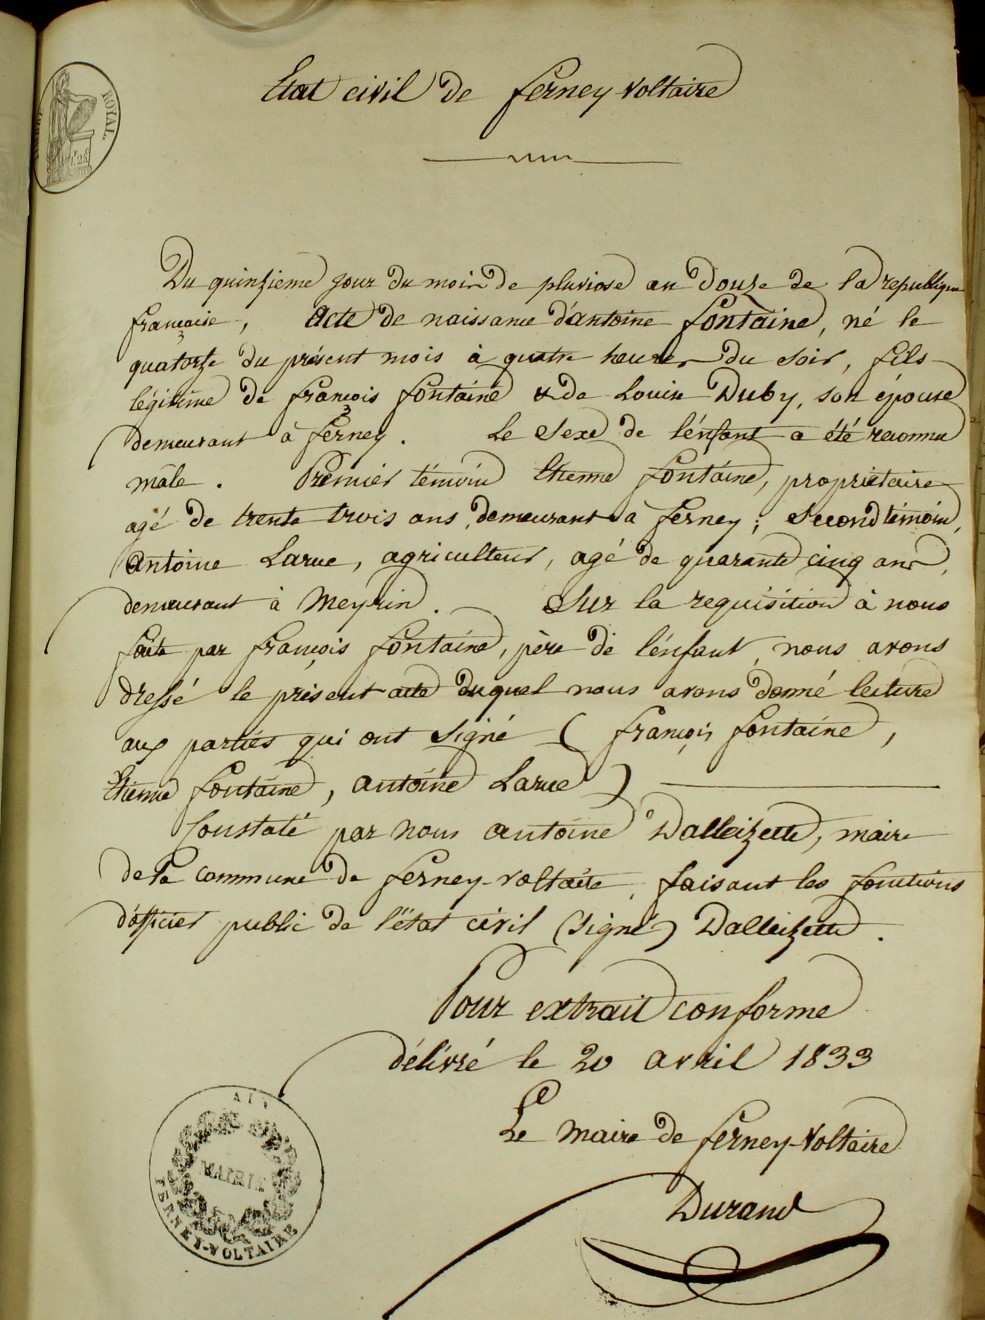 ROYAL
Etat civil de ferney voltaire
Du quinzieme jour du mois de pluviose an douze de la republique
française, Acte de naissance d'antoine fontaine, né le
quatorze du présent mois à quatre heures du soir, fils
légitime de françois fontaine & de Louise Duby, son épouse
demeurant à ferney. Le sexe de l'enfant a été reconnu
mâle. Premier témoin Etienne fontaine, propriétaire
agé de trente trois ans, demeurant à ferney; second témoin,
antoine Larue, agriculteur, agé de quarante cinq ans,
demeurant à Meyrin. Sur la requisition à nous
faite par françois fontaine, père de l'enfant, nous avons
dressé le présent acte duquel nous avons donné lecture
aux parties qui ont signé (françois fontaine,
Etienne fontaine, antoine Larue)
Constaté par nous antoine Dalleizette, maire
de la commune de ferney-voltaire, faisant les fonctions
d'officier public de l'état civil (signé) Dalleizette.
Pour extrait conforme
délivré le 20 avril 1833
Le maire de ferney-Voltaire
Durand
AIN
MAIRIE
FERNEY-VOLTAIRE